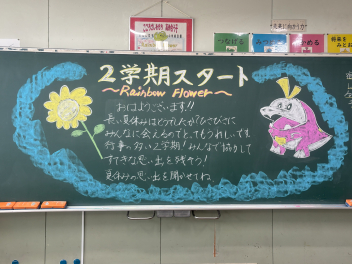 つなげる
２学期スタート
～Rainbow Flower～
おはようございます!!
長い夏休みはどうでしたか?ひさびさに
みんなに会えるので、とてもうれしいです。
行事の多い2学期!みんなで協力して
すてきな思い出を残そう!
夏休みの思い出を聞かせてね。